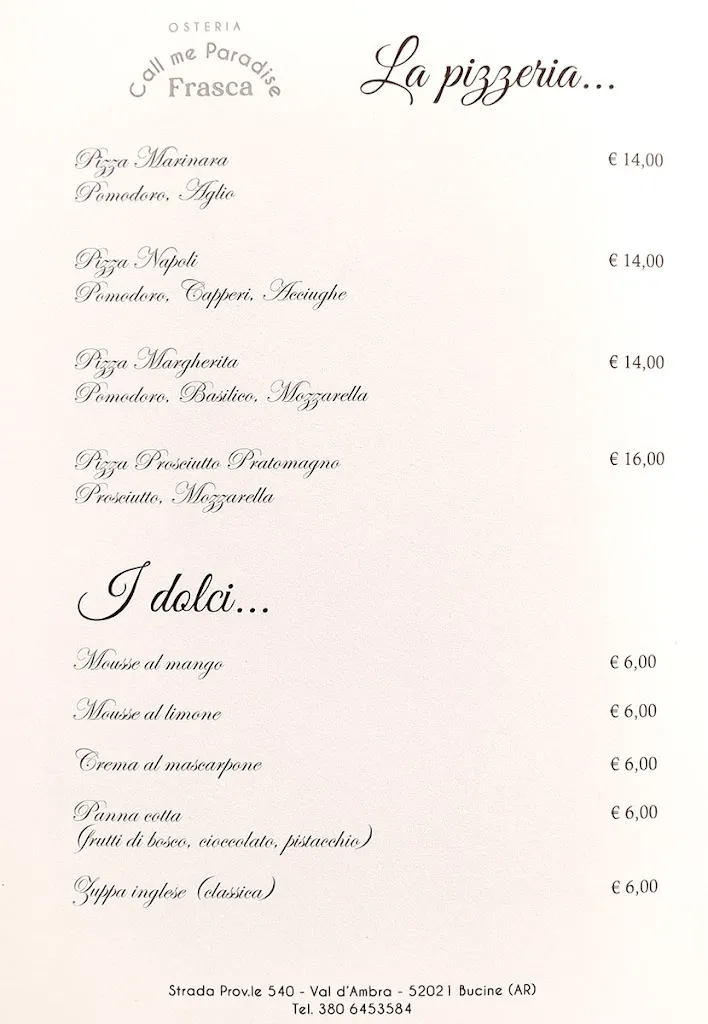 OSTERIA
Call me Paradise
Frasca
La pizzeria...
Pizza Marinara € 14,00
Pomodoro, Aglio
Pizza Napoli € 14,00
Pomodoro, Capperi, Acciughe
Pizza Margherita € 14,00
Pomodoro, Basilico, Mozzarella
Pizza Prosciutto Pratomagno € 16,00
Prosciutto, Mozzarella
I dolci...
Mousse al mango € 6,00
Mousse al limone € 6,00
Crema al mascarpone € 6,00
Panna cotta € 6,00
(frutti di bosco, cioccolato, pistacchio)
Zuppa inglese (classica) € 6,00
Strada Prov.le 540 - Val d'Ambra - 52021 Bucine (AR)
Tel. 380 6453584